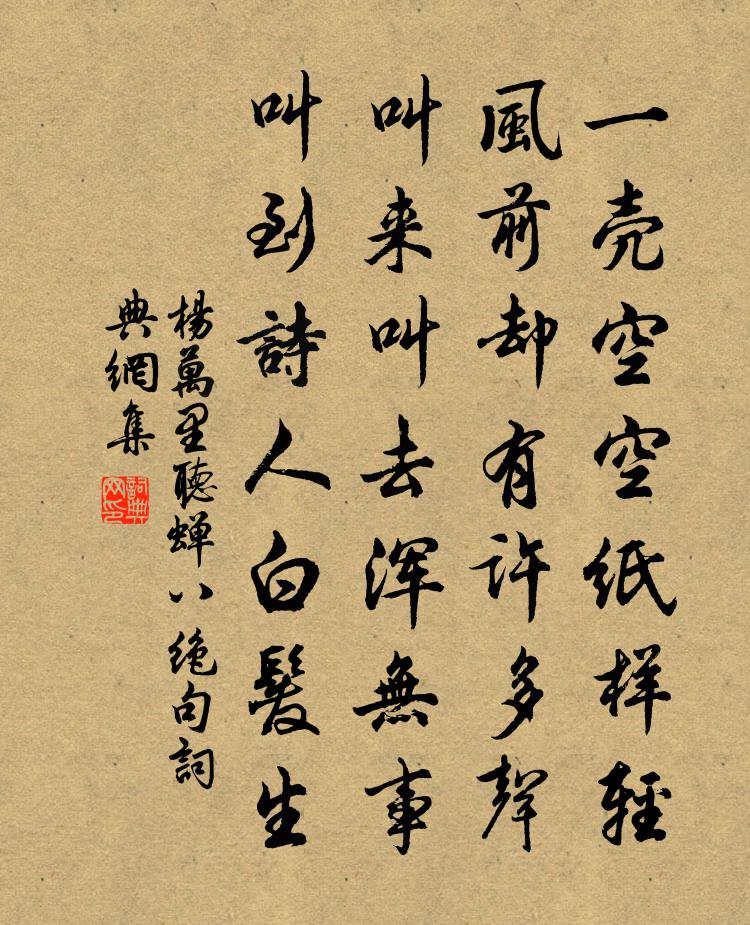 一壳空空纸样輕
風前却有许多聲
叫来叫去浑無事
叫到詩人白髮生
楊萬里聽蝉八绝句詞
典網集
詞典
网印